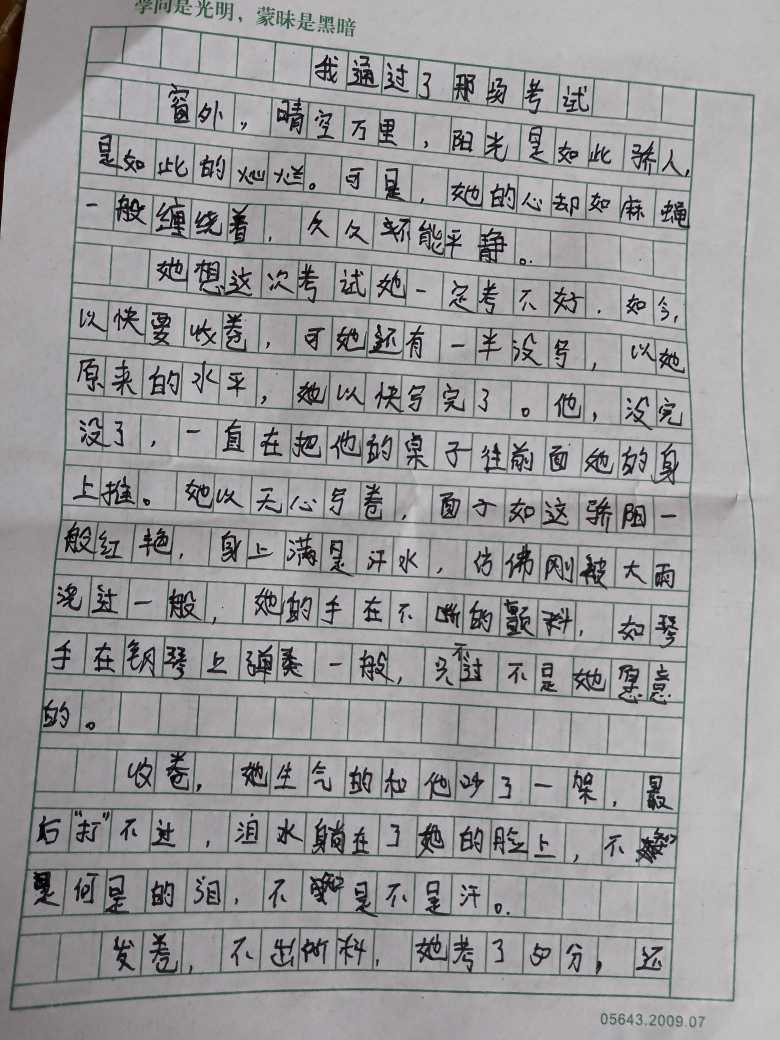 学问是光明，蒙昧是黑暗
我通过了那场考试
窗外，晴空万里，阳光是如此骄人，
是如此的灿烂。可是，她的心却如麻蝇
一般缠绕着，久久不能平静。
她想这次考试她一定考不好．如今，
以快要收卷，可她还有一半没写，以她
原来的水平，她以快写完了。他，没完
没了，一直在把他的桌子往前面她的身
上推。她以无心写卷，面于如这骄阳一
般红艳，身上满是汗水，仿佛刚被大雨
浇过一般，她的手在不断的颤抖，如琴
手在钢琴上弹奏一般，只不过不是她愿意
的。
收卷，她生气的和他吵了一架，最
后"打"不过，泪水躺在了她的脸上，不知
是何是的泪，不知是不是汗。
发卷，不出所料，她考了50分，还
05643.2009.07